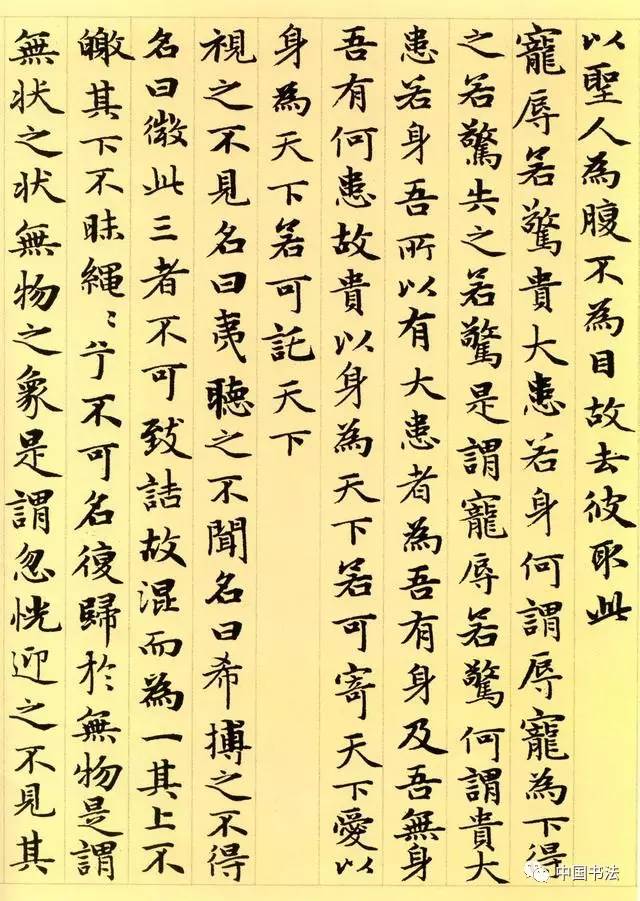 以聖人為腹不為目故去彼取此
寵辱若驚貴大患若身何謂辱寵為下得
之若驚失之若驚是謂寵辱若驚何謂貴大
患若身吾所以有大患者為吾有身及吾無身
吾有何患故貴以身為天下若可寄天下愛以
身為天下若可託天下
視之不見名曰夷聽之不聞名曰希搏之不得
名曰微此三者不可致詰故混而為一其上不
皦其下不昧繩〻兮不可名復歸於無物是謂
無状之状無物之象是謂忽恍迎之不見其
中国书法